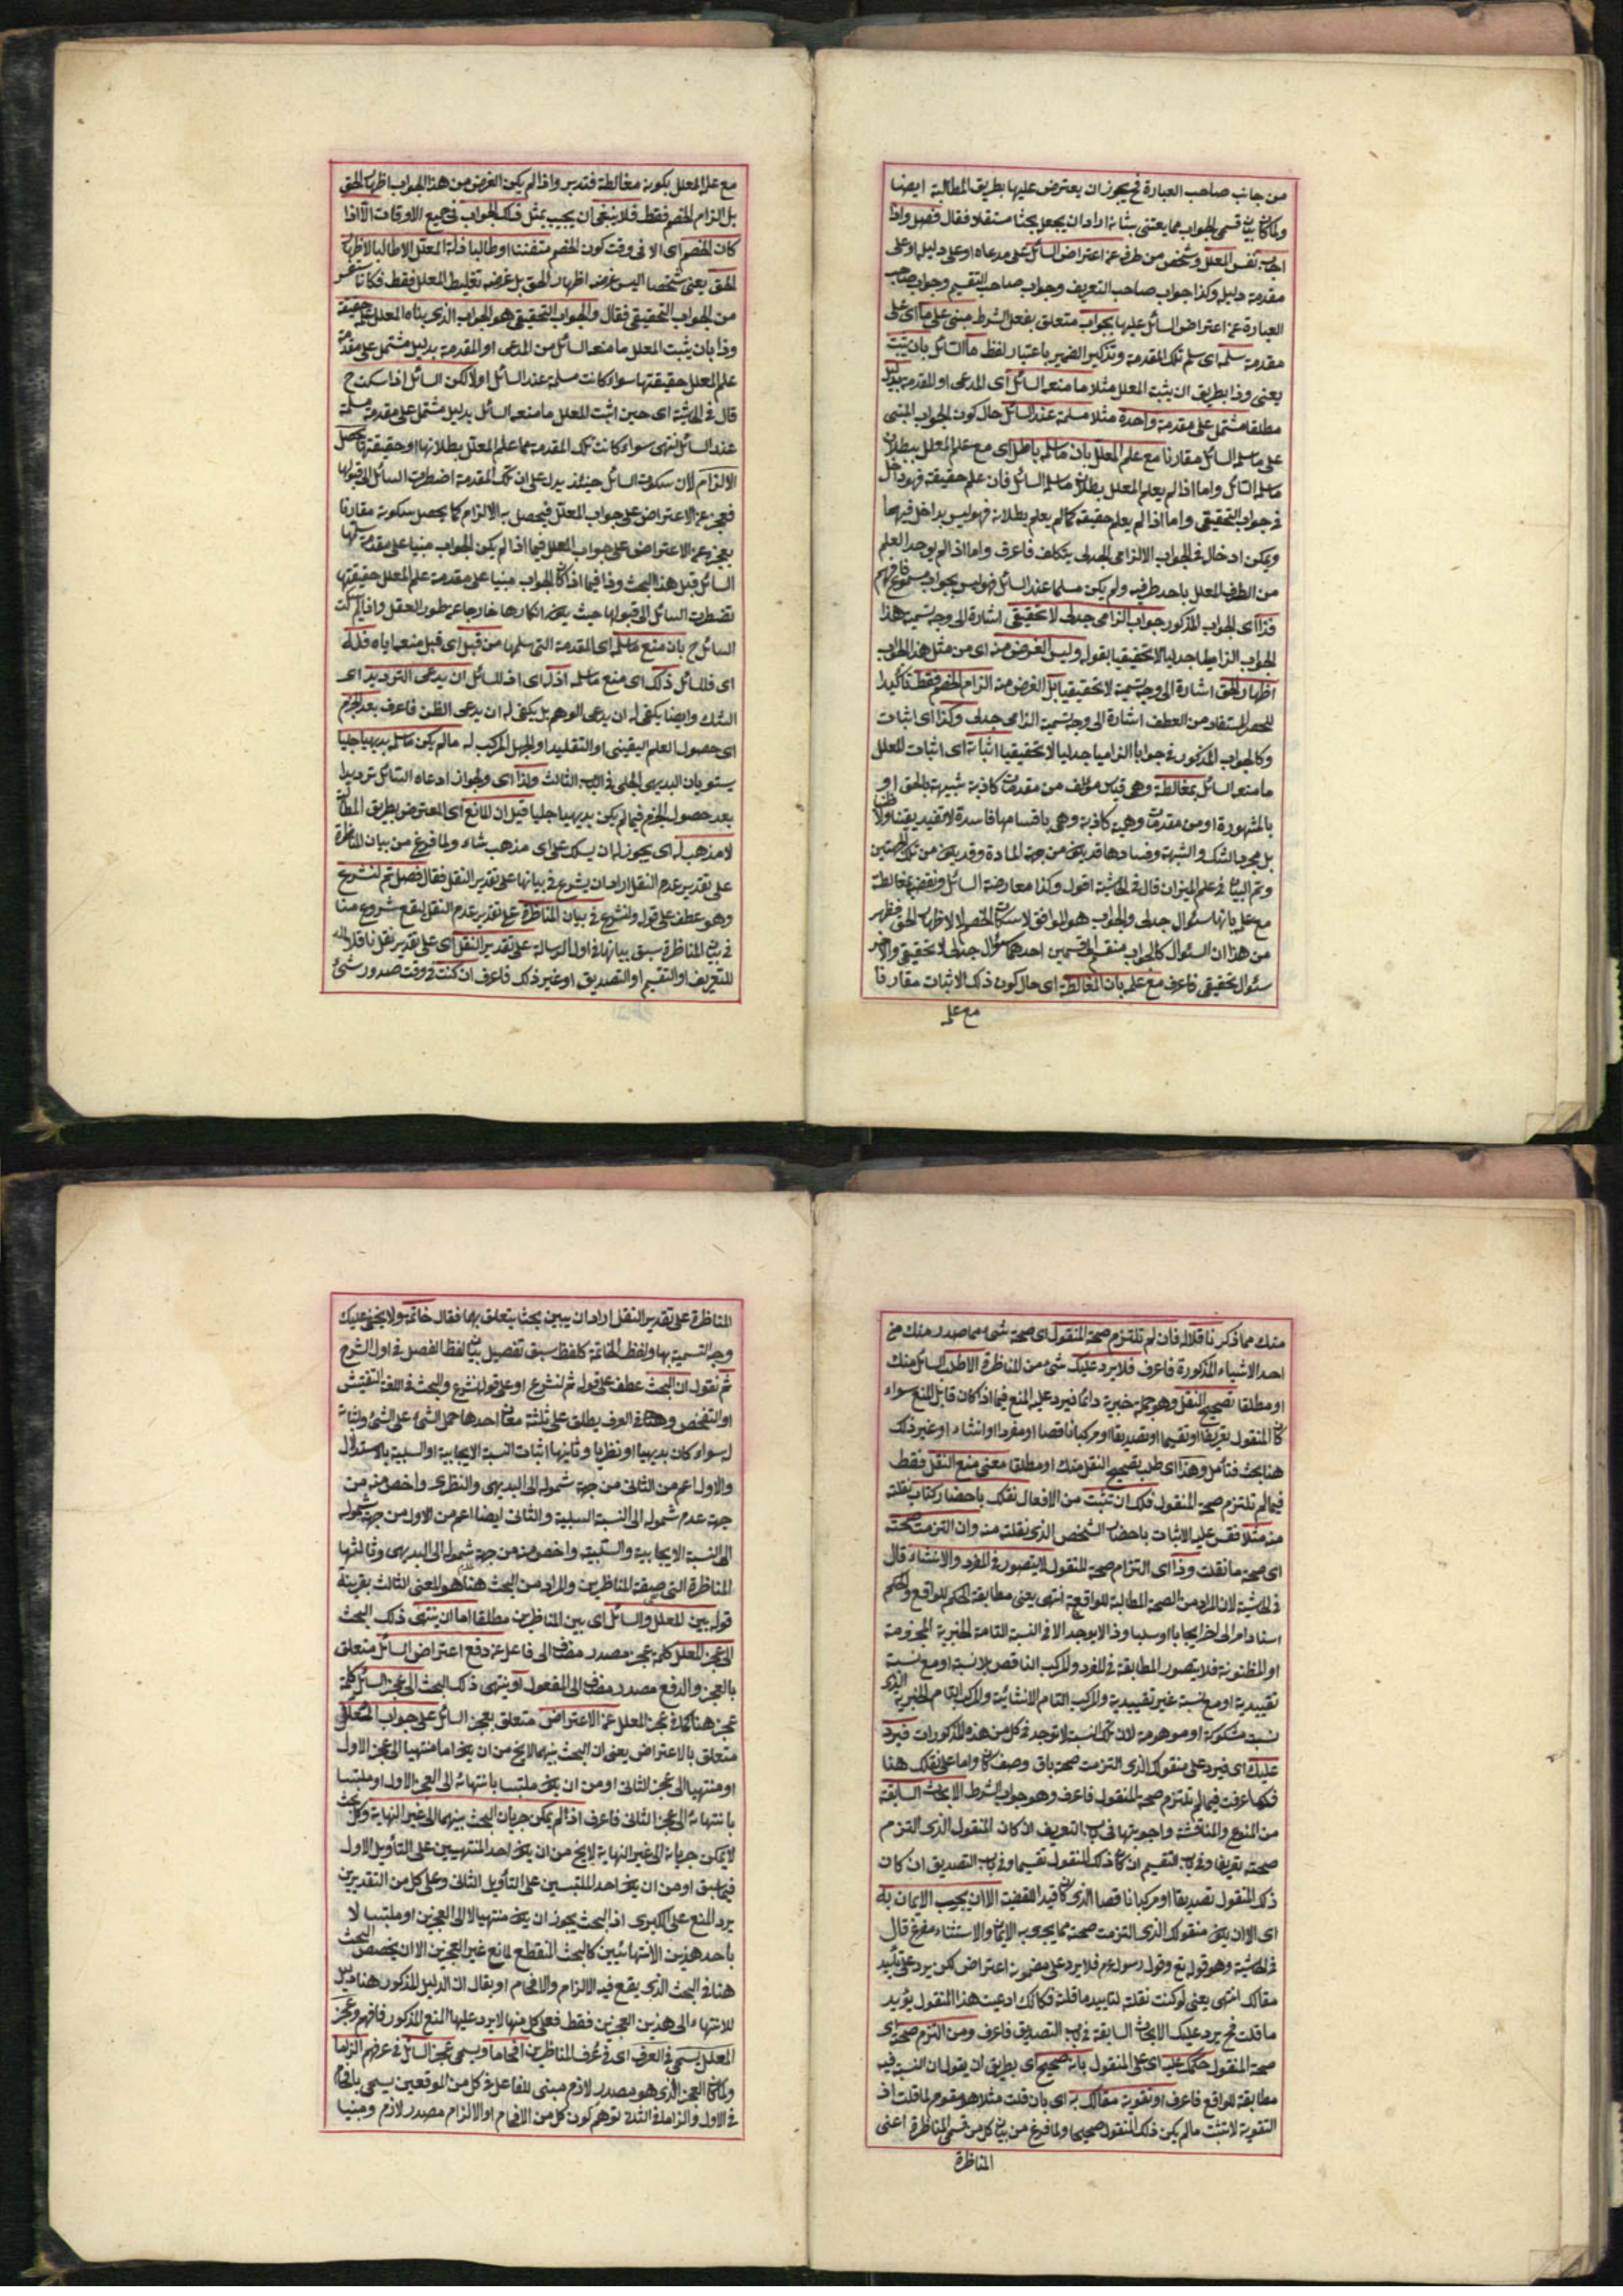 من جانب صاحب العبارة فح يجوز ان يعترض عليها بطريق المطالبة ايضا
ولما كان بيان قسمى الجواب مما يعتنى بشانه اراد ان يجعل بحثا مستقلا فقال فصل واذا
اجاب نفس المعلل وشخص من طرفه عن اعتراض السائل على مدعاه او على دليله او على
مقدمة دليله وكذا جواب صاحب التعريف وجواب صاحب التقسيم وجواب صاحب
العبارة عن اعتراض السائل عليها بجواب متعلق بفعل الشرط مبنى على ما اى على
مقدمة سلمه اى سلم تلك المقدمة وتذكير الضمير باعتبار لفظ ما السائل بان يثبت
يعنى وذا بطريق ان يثبت المعلل مثلا ما منعه السائل اى المدعى او المقدمة بدليل
مطلقا مشتمل على مقدمة واحدة مثلا مسلمة عند السائل حال كون الجواب المبنى
على ما سلمه السائل مقارنا مع علم المعلل بان ما سلمه باطل اى مع علم المعلل ببطلان
ما سلمه السائل واما اذا لم يعلم المعلل بطلان ما سلمه السائل فان علم حقيقته فهو داخل
فى جواب التحقيقى واما اذا لم يعلم حقيقته كما لم يعلم بطلانه فهو ليس بداخل فيهما
ويمكن ادخاله فى الجواب الالزامى الجدلى بتكلف فاعرف واما اذا لم يوجد العلم
من الطرف المعلل باحد طرفيه ولم يكن مسلما عند السائل فهو ليس بجواب مسموع فافهم
فذا اى الجواب المذكور جواب الزامى جدلى لا تحقيقى اشارة الى وجه تسمية هذا
الجواب الزاميا جدليا لا تحقيقيا بقوله وليس الغرض منه اى من مثل هذا الجواب
اظهار الحق اشارة الى وجه تسميته لا تحقيقيا بل الغرض منه الزام الخصم فقط تاكيدا
للحصر المستفاد من العطف اشارة الى وجه تسمية الزامى جدلى وكذا اى اثبات
وكالجواب المذكور فى جوابا الزاميا جدليا لا تحقيقيا اثباته اى اثبات المعلل
ما منعه السائل بمغالطة وهى قياس مؤلف من مقدمات كاذبة شبيهة بالحق او
بالمشهورة او من مقدمات وهمية كاذبة وهى باقسامها فاسدة لا تفيد يقينا ولا ظنا
بل مجرد الشك والشبهة وفسادها قد يكون من جهة المادة وقد يكون من تلك الجهتين
وتم البيان فى علم الميزان قال فى الحاشية اقول وكذا معارضة السائل ونقضه بمغالطة
مع علمه بانها سئوال جدلى والجواب هو الموافق لاسكات الخصم لا لاظهار الحق فظهر
من هذا ان السئوال كالجواب منقسم الى قسمين احدهما سؤال جدلى لا تحقيقى والاخر
سئوال تحقيقى فاعرف مع علمه بان المغالطة اى حال كون ذلك الاثبات مقارنا
مع علم
مع علم المعلل بكونه مغالطة فتدبر واذا لم يكن الغرض من هذا الجواب اظهار الحق
بل الزام الخصم فقط فلا ينبغى ان يجيب بمثل ذلك الجواب فى جميع الاوقات الا اذا
كان الخصم اى الا فى وقت كون الخصم متعنتا او طالبا ذلة المعلل لا طالبا لاظهار
الحق يعنى شخصا ليس غرضه اظهار الحق بل غرضه تغليط المعلل فقط
من الجواب التحقيقى فقال والجواب التحقيقى هو الجواب الذى بناه المعلل على حقيقة
وذا بان يثبت المعلل ما منعه السائل من المدعى او المقدمة بدليل مشتمل على مقدمة
علم المعلل حقيقتها سواء كانت مسلمة عند السائل اولا لكن السائل اذا سكت ح
قال فى الحاشية اى حين اثبت المعلل ما منعه السائل بدليل مشتمل على مقدمة مسلمة
عند السائل انتهى سواء كانت تلك المقدمة مما علم المعلل بطلانها او حقيقتها حصل
الالزام لان سكوت السائل حينئذ يدل على ان تلك المقدمة اضطرت السائل الى قبولها
فعجز عن الاعتراض على جواب المعلل فيحصل به الالزام كما يحصل سكوته مقارنا
بعجزه عن الاعتراض على جواب المعلل فيما اذا لم يكن الجواب مبنيا على مقدمة سلمها
السائل قبل هذا البحث وذا فيما اذا كان الجواب مبنيا على مقدمة علم المعلل حقيقتها
تضطرت السائل الى قبولها حيث يكون انكارها خارجا عن طور العقل واذا لم يسكت
السائل ح بان منع ما سلمه اى المقدمة التى سلمها من قبل اى قبل منعه اياه فذلك
اى فللسائل ذلك اى منع ما سلمه اذ له اى اذ للسائل ان يدعى الترديد اى
الشك وايضا يكفى له ان يدعى الوهم بل يكفى له ان يدعى الظن فاعرف بعد الجزم
اى حصول العلم اليقينى او التقليد او الجهل المركب له ما لم يكن ما سلمه بديهيا جليا
يستويان البديهى الجلى فى الثالث ولذا اى ولجواز ادعاء السائل ترديدا
بعد حصول الجزم فيما لم يكن بديهيا جليا قيل ان المانع اى المعترض بطريق المطالبة
لا مذهب له اى يجوز له ان يسلك على اى مذهب شاء ولما فرغ من بيان المناظرة
على تقدير عدم النقل اراد ان يشرع فى بيانها على تقدير النقل فقال فصل ثم لنشرع
وهو عطف على قوله ولنشرع فى بيان المناظرة على تقدير عدم النقل ليقع شروع منا
فى بيان المناظرة سبق بيانها فى اول الرسالة على تقدير النقل اى على تقدير نقل ناقلا
للتعريف او التقسيم او التصديق او غير ذلك فاعرف ان كنت فى وقت صدور شئ
منك مما ذكر ناقلا له فان لم تلتزم صحة المنقول اى صحة شئ مما صدر منك من
احد الاشياء المذكورة فاعرف فلا يرد عليك شئ من المناظرة الا طلب السائل منك
او مطلقا تصحيح النقل وهو جملة خبرية دائما فيرد عليه المنع فيما اذا كان قابل المنع سواء
كان المنقول تعريفا او تقسيما او تصديقا او مركبا ناقصا او مفردا او انشاء او غير ذلك
هنا بحث فتأمل وهذا اى طلب تصحيح النقل منك او مطلقا معنى منع النقل فقط
فيما لم تلتزم صحة المنقول فلك ان تثبت من الافعال نقلك باحضار كتاب نقلته
منه مثلا فقس عليه الاثبات باحضار الشخص الذى نقلته منه وان التزمت صحته
اى صحة ما نقلت وذا اى التزام صحة المنقول لا يتصور فى المفرد والانشاء قال
فى الحاشية لان المراد من الصحة المطابقة للواقع انتهى يعنى مطابقة الحكم للواقع والحكم
اسناد امر الى اخر ايجابا او سلبا وذا لا يوجد الا فى النسبة التامة الخبرية المجزومة
او المظنونة فلا يتصور المطابقة فى المفرد والمركب الناقص بلا نسبة او مع نسبة
تقييدية او مع نسبة غير تقييدية والمركب التام الانشائية والمركب التام الخبرية الذى
نسبته مشكوكة او موهومة لان تلك النسبة لا توجد فى كل من هذه المذكورات فيرد
عليك اى فيرد على منقولك الذى التزمت صحته باى وصف كان واما على نقلك هنا
فكما عرفت فيما لم تلتزم صحة المنقول فاعرف وهو جواب الشرط الابحاث السابقة
من المنوع والمناقشة واجوبتها فى باب التعريف ان كان المنقول الذى التزم
صحته تعريفا وفى باب التقسيم ان كان ذلك المنقول تقسيما وفى باب التصديق ان كان
ذلك المنقول تصديقا او مركبا ناقصا الذى كان قيدا للقضية الا ان يجب الايمان به
اى الا ان يكون منقولك الذى التزمت صحته مما يجب به الايمان والاستثناء مفرغ قال
فى الحاشية وهو قوله تع وقول رسوله عم فلا يرد على مضمونه اعتراض لكن يرد على تأييد
مقالك انتهى يعنى لو كنت نقلته لتاييد ما قلته فكانك ادعيت هذا المنقول يؤيد
ما قلت فح يرد عليك الابحاث السابقة فى باب التصديق فاعرف ومن التزم صحة اى
صحة المنقول حكمك عليه اى على المنقول بانه صحيح اى بطريق ان يقول ان النسبة فيه
مطابقة للواقع فاعرف او تقوية مقالك به اى بان قلت مثلا هو مقوم لما قلت اذ
التقوية لا تثبت ما لم يكن ذلك المنقول صحيحا ولما فرغ من بيان كل من قسمى المناظرة اعنى
المناظرة
المناظرة على تقدير النقل اراد ان يبين بحث يتعلق بهما فقال خاتمة ولا يخفى عليك
وجه التسمية بها ولفظ الخاتمة كلفظ سبق تفصيل بيان لفظ الفصل فى اول الشرح
ثم نقول ان البحث عطف على قوله ثم لنشرع او على قوله لنشرع والبحث فى اللغة التفتيش
او التفحص وهنا فى العرف يطلق على ثلثة معان احدها حمل الشئ على الشئ واثباته
له سواء كان بديهيا او نظريا وثانيها اثبات النسبة الايجابية او السلبية بالاستدلال
والاول اعم من الثانى من جهة شموله الى البديهى والنظرى واخص منه من
جهة عدم شموله الى النسبة السلبية والثانى ايضا اعم من الاول من جهة شموله
الى النسبة الايجابية والسلبية واخص منه من جهة شموله الى البديهى وثالثها
المناظرة التى صيغة المناظرين والمراد من البحث هنا هو المعنى الثالث بقرينة
قوله بين المعلل والسائل اى بين المناظرين مطلقا اما ان ينتهى ذلك البحث
الى عجز المعلل كلمة عجز مصدر مضاف الى فاعل عن دفع اعتراض السائل متعلق
بالعجز والدفع مصدر مضاف الى المفعول او ينتهى ذلك البحث الى عجز السائل كلمة
عجز هنا كما فى عجز المعلل عن الاعتراض متعلق بعجز السائل على جواب المعلل
متعلق بالاعتراض يعنى ان البحث بينهما لا يخ من ان يكون اما منتهيا الى عجز الاول
او منتهيا الى عجز الثانى او من ان يكون ملتبسا بانتهائه الى العجز الاول او ملتبسا
بانتهائه الى عجز الثانى فاعرف اذ لم يمكن جريان البحث بينهما الى غير النهاية وكل بحث
لا يمكن جريانه الى غير النهاية لا يخ من ان يكون احد المنتهيين على التأويل الاول
فيما سبق او من ان يكون احد الملتبسين على التأويل الثانى وعلى كل من التقديرين
يرد المنع على الكبرى اذ البحث يجوز ان يكون منتهيا لا الى العجزين او ملتبسا لا
باحد هذين الانتهائيين كالبحث المنقطع لمانع غير العجزين الا ان يخصص البحث
هنا فى البحث الذى يقع فيه الالزام والافحام او يقال ان الدليل المذكور هنا دليل
للانتهاء الى هذين العجزين فقط فعلى كل منها لا يرد عليها المنع المذكور فافهم وعجز
المعلل يسمى فى العرف اى فى عرف المناظرين افحاما ويسمى عجز السائل فى عرفهم الزاما
ولما كان العجز الذى هو مصدر لازم مبنى للفاعل فى كل من الموقعين يسمى بافحام
فى الاول والزاما فى الثانى توهم كون كل من الافحام او الالزام مصدر لازم ومبنيا